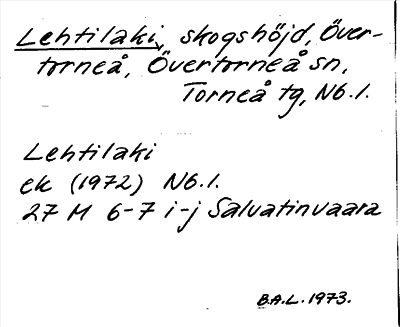 Lehtilaki, skogshöjd, Över-
torneå, Övertorneå sn,
Torneå tg, Nb.l.
Lehtilaki
ek (1972) Nb.l.
27 M 6-7 i-j Salvatinvaara
B.A.L. 1973.